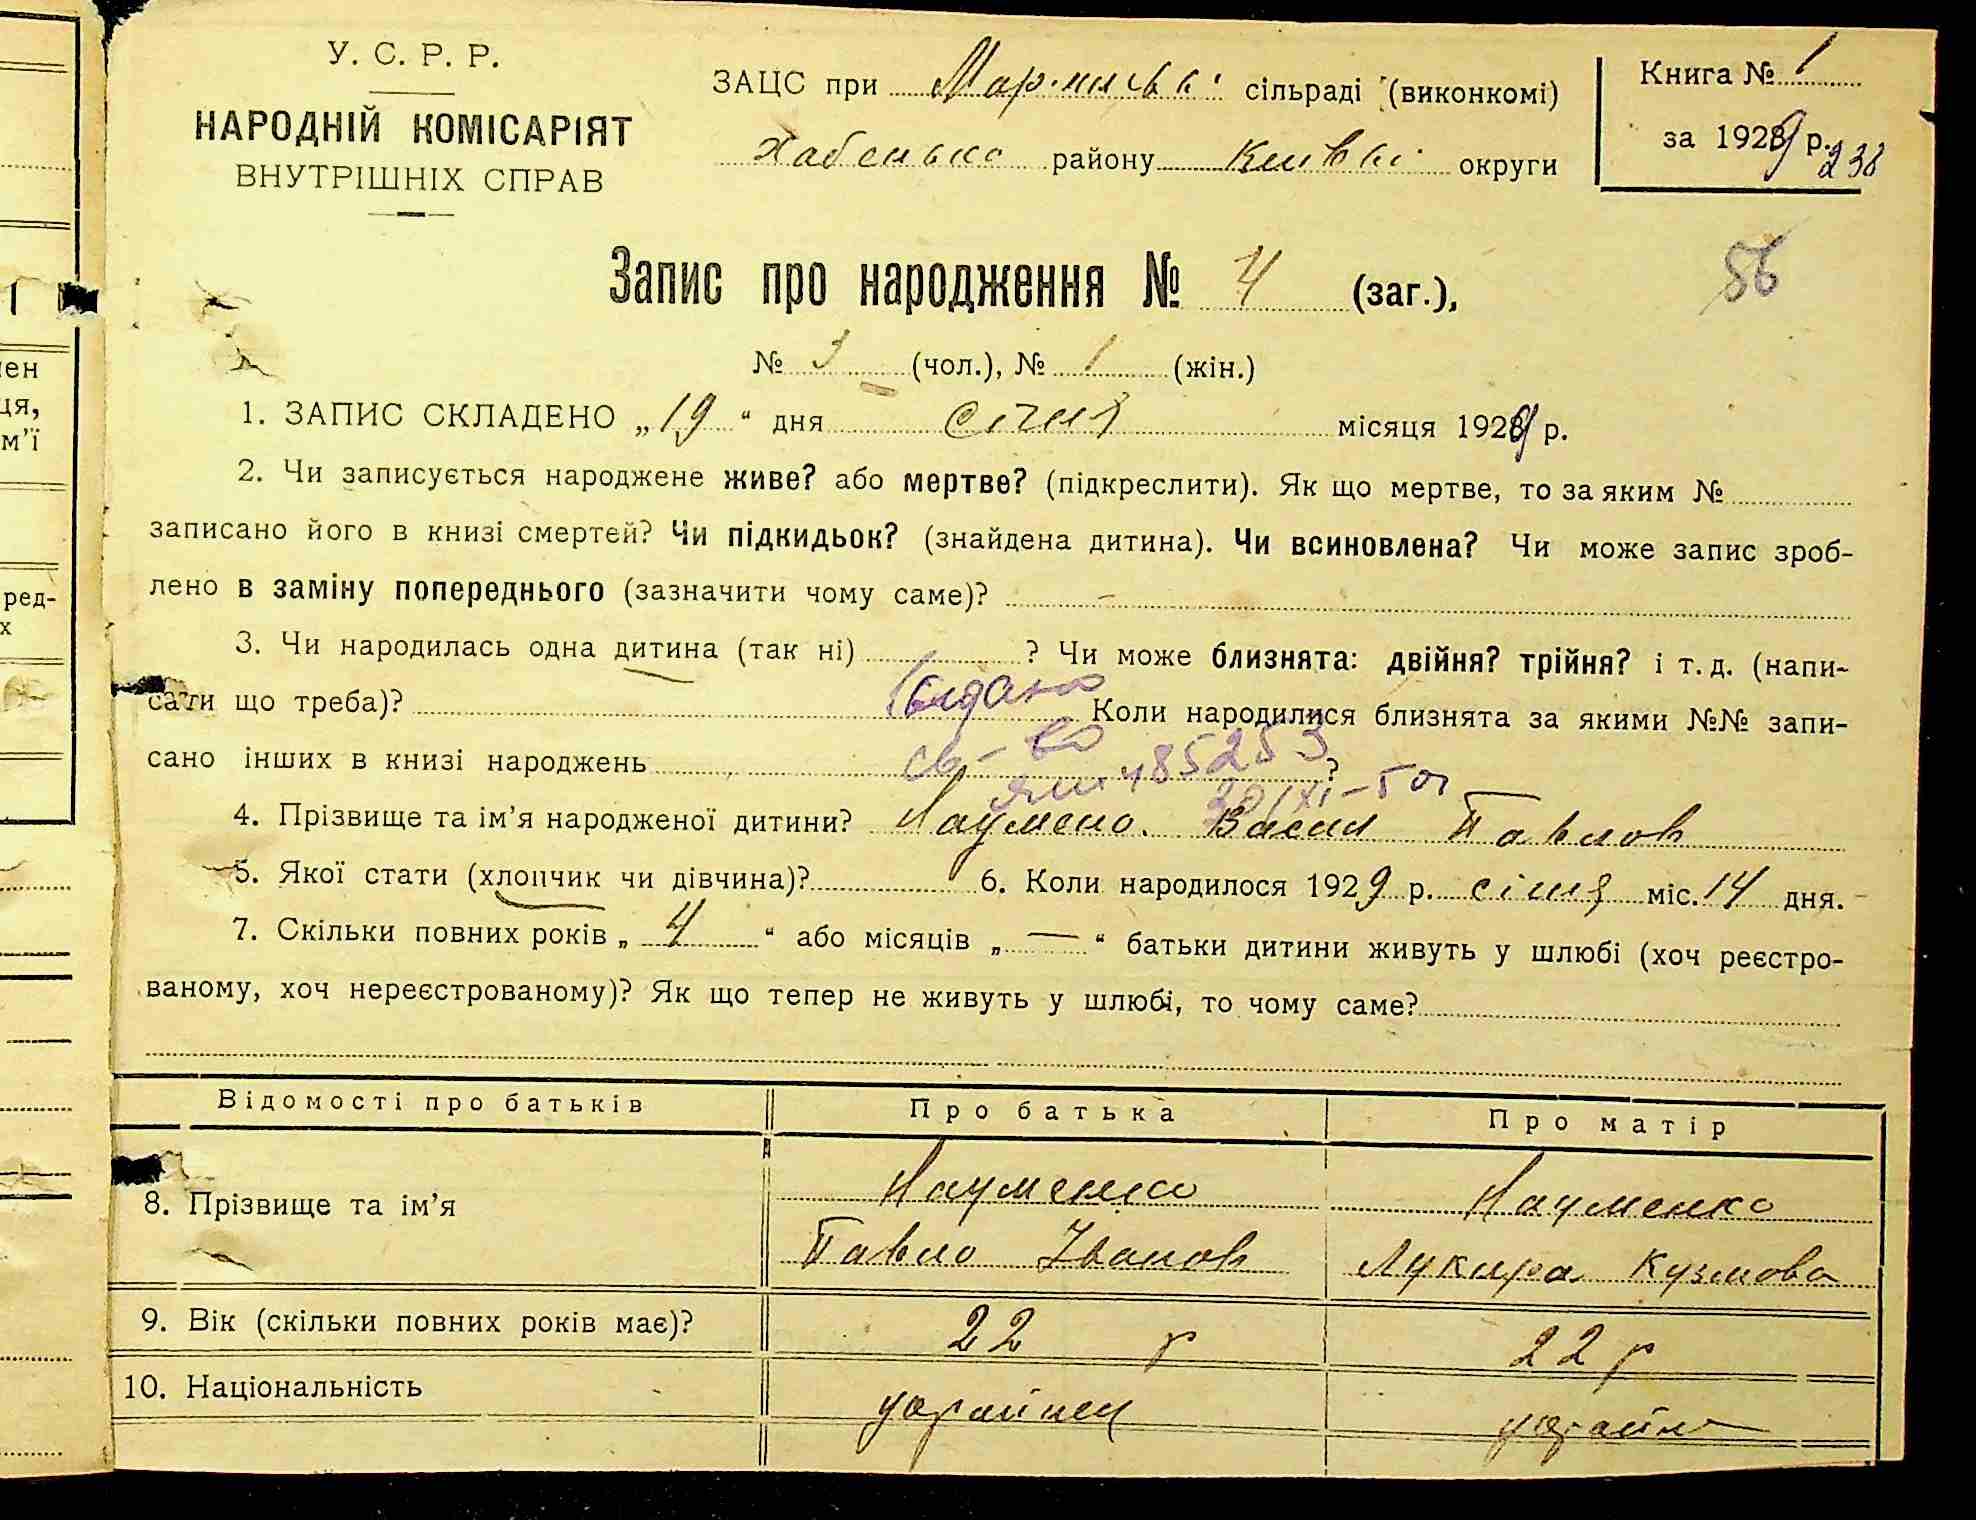 У. С. Р. Р.
НАРОДНІЙ КОМІСАРІЯТ
ВНУТРІШНІХ СПРАВ
ЗАЦС при сільраді (виконкомі)
району округи
Книга № 1
за 1929 р.
238
86
Запис про народження № 4 (заг.),
№ 3 (чол.), № 1 (жін.)
1. ЗАПИС СКЛАДЕНО „19“ дня січня місяця 1929 р.
2. Чи записується народжене живе? або мертве? (підкреслити). Як що мертве, то за яким №
записано його в книзі смертей? Чи підкидьок? (знайдена дитина). Чи всиновлена? Чи може запис зроб-
лено в заміну попереднього (зазначити чому саме)? –
3. Чи народилась одна дитина (так ні) ? Чи може близнята: двійня? трійня? і т. д. (напи-
сати що треба)? Коли народилися близнята за якими №№ запи-
сано інших в книзі народжень ?
Выдано
св-во
485253
30/XI-50г
4. Прізвище та ім’я народженої дитини? Науменко Васил Павлов
5. Якої стати (хлопчик чи дівчина)? 6. Коли народилося 1929 р. січня міс. 14 дня.
7. Скільки повних років „ 4 “ або місяців „ — “ батьки дитини живуть у шлюбі (хоч реєстро-
ваному, хоч нереєстрованому)? Як що тепер не живуть у шлюбі, то чому саме?
Відомості про батьків Про батька Про матір
8. Прізвище та ім’я Науменко Науменко
Павло Іванов Лукира Кузмова
9. Вік (скільки повних років має)? 22 р 22 р
10. Національність українец україн
ен
ця,
м’ї
ред-
х